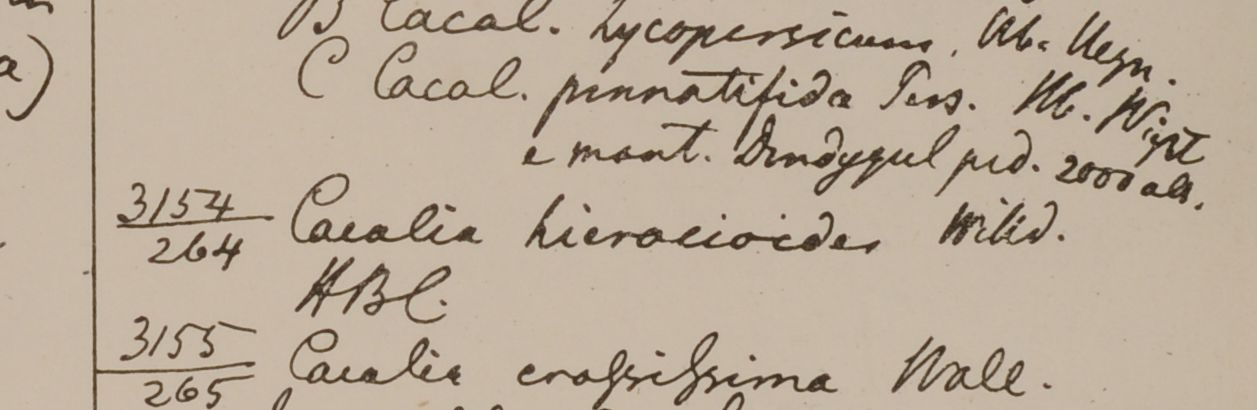 a)
B Cacal. Lycopersicum. Hb. Heyn.
C Cacal. pinnatifida Pers. Hb. Wight
e mont. Dindygul ped. 2000 alt.
3154 Cacalia hieracioides Willd.
264
HBC.
3155 Cacalia crassissima Wall.
265